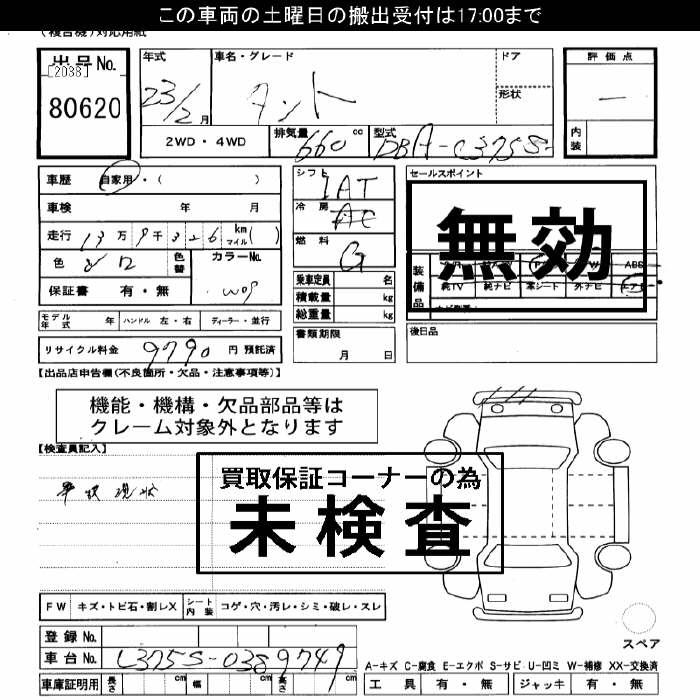 この車両の土曜日の搬出受付は17:00まで
(複合機)対応用紙
出品No.
[2038]
80620
年式
23/2月
車名・グレード
タント
ドア
形状
評価点
—
内装
2WD・4WD
排気量
660 cc
型式
DBA-L375S
車歴 自家用・( )
車検 年 月
走行 13万9千326 km マイル( )
色 シロ 色替
カラーNo.
W09
保証書 有・無
シフト
IAT
冷房
AC
燃料
G
乗車定員 名
積載量 kg
総重量 kg
セールスポイント
無効
装備品
ABS
純TV 純ナビ 革シート 外ナビ エアB
モデル年式 年 ハンドル 左・右 ディーラー・並行
書類期限
月 日
後日品
リサイクル料金 9790 円 預託済
【出品店申告欄(不良箇所・欠品・注意事項等)】
機能・機構・欠品部品等は
クレーム対象外となります
【検査員記入】
買取保証コーナーの為
未検査
現状
FW キズ・トビ石・割レX シート内装 コゲ・穴・汚レ・シミ・破レ・スレ
スペア
登録No.
車台No. L375S-0389749
A-キズ C-腐食 E-エクボ S-サビ U-凹ミ W-補修 XX-交換済
車庫証明用 長さ cm 幅 cm 高さ cm
工具 有・無 ジャッキ 有・無